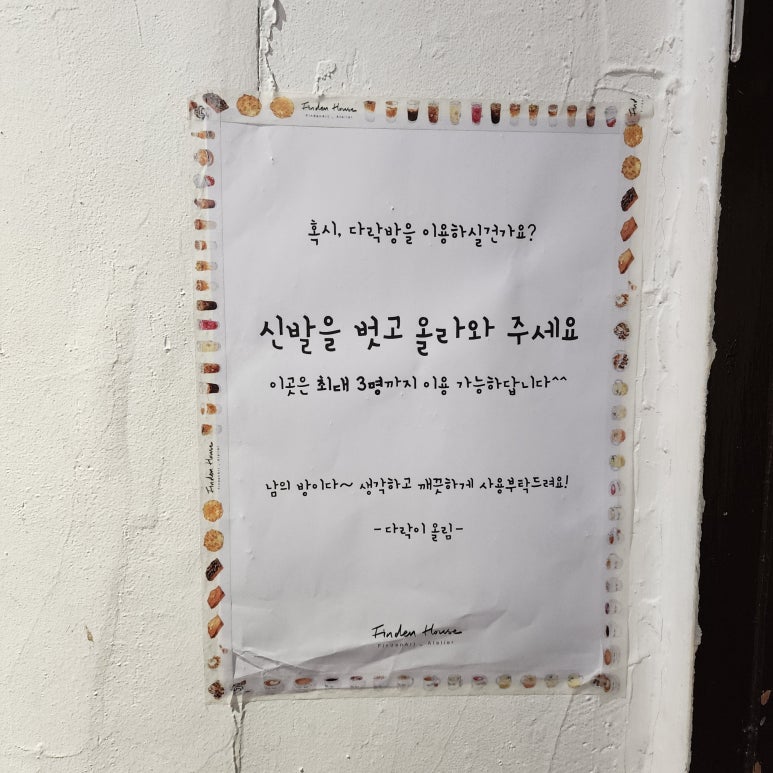 Finden House
FindenArt _ Atelier
혹시, 다락방을 이용하실건가요?
신발을 벗고 올라와 주세요
이곳은 최대 3명까지 이용 가능하답니다^^
남의 방이다~ 생각하고 깨끗하게 사용부탁드려요!
-다락이 올림-
Finden House
FindenArt _ Atelier
Finden House